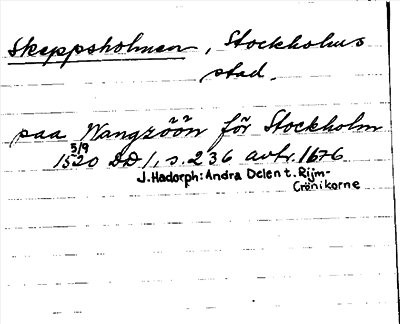 Skeppsholmen, Stockholms
stad.
paa Wangzöön för Stockholm
5/9
1520 DD 1, s. 236 avtr. 1676
J. Hadorph: Andra Delen t. Rijm-
Crönikorne